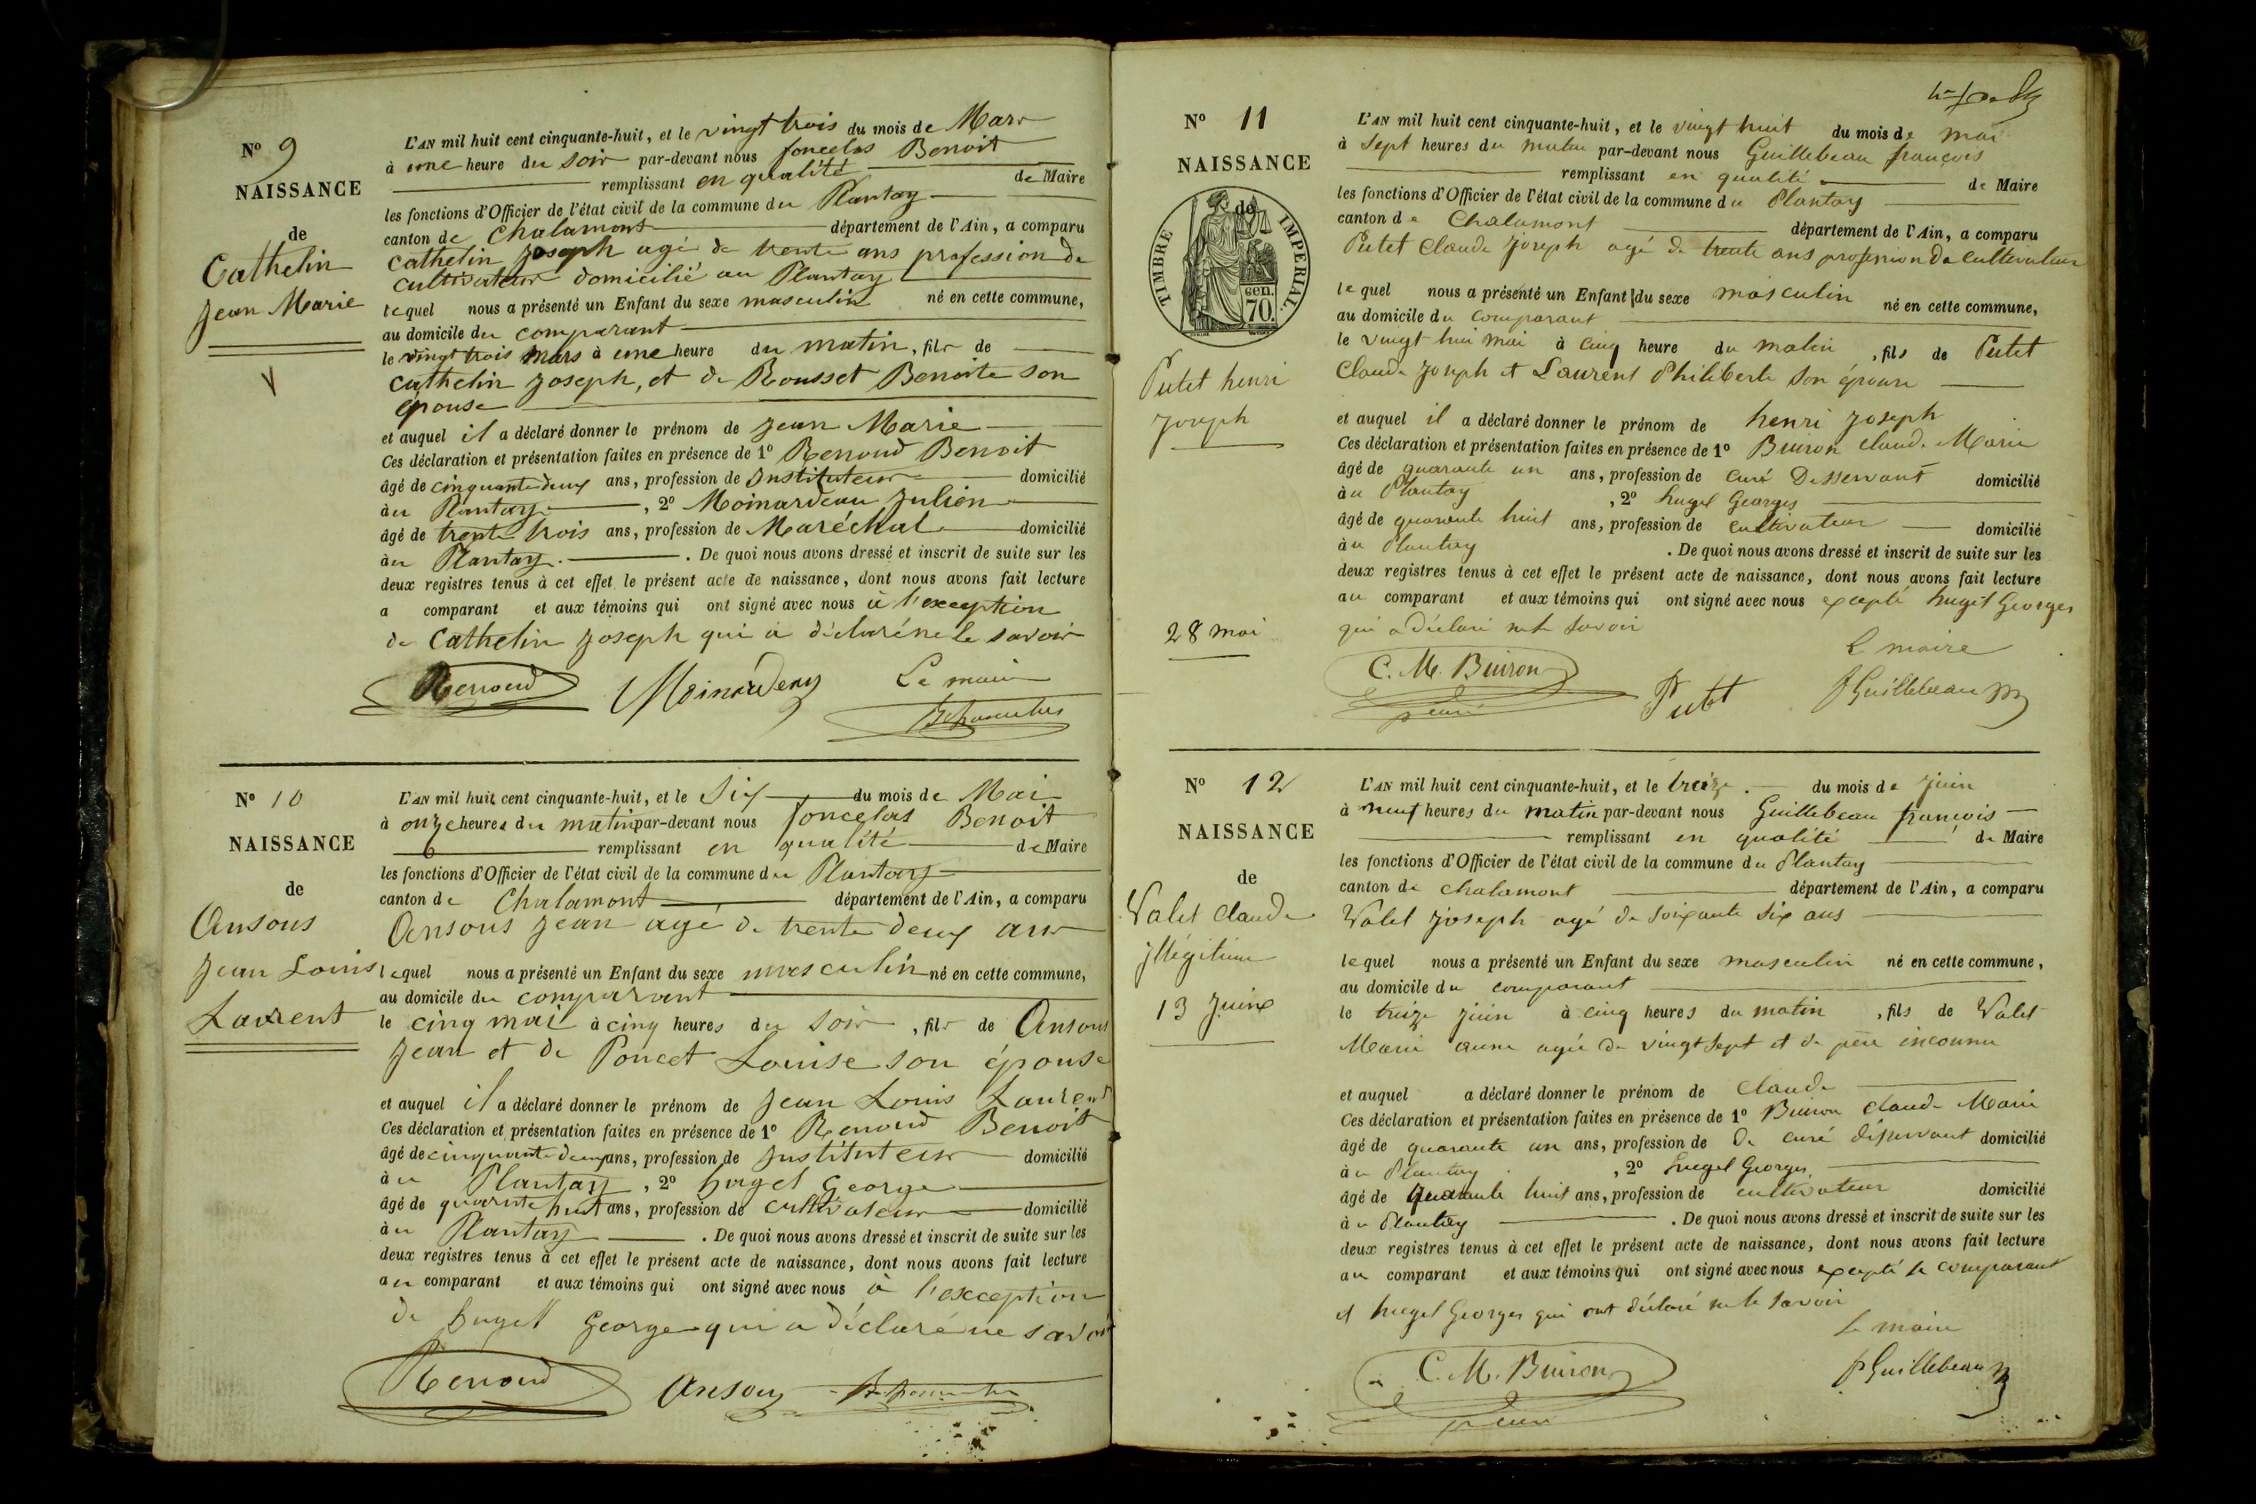 N° 9
NAISSANCE
de
Cathelin
Jean Marie
L'AN mil huit cent cinquante-huit, et le vingt trois du mois de Mars
à une heure du soir par-devant nous foncelas Benoit
remplissant en qualité de Maire
les fonctions d'Officier de l'état civil de la commune du Plantay
canton de Chalamont département de l'Ain, a comparu
Cathelin Joseph agé de trente ans profession de
cultivateur domicilié au Plantay
lequel nous a présenté un Enfant du sexe masculin né en cette commune,
au domicile du comparant
le vingt trois mars à une heure du matin, fils de
Cathelin Joseph, et de Rousset Benoite son
épouse
et auquel il a déclaré donner le prénom de Jean Marie
Ces déclaration et présentation faites en présence de 1° Renoud Benoit
âgé de cinquante deux ans, profession de Instituteur domicilié
au Plantay, 2° Moinardeau Julien
âgé de trente trois ans, profession de Maréchal domicilié
au Plantay. De quoi nous avons dressé et inscrit de suite sur les
deux registres tenus à cet effet le présent acte de naissance, dont nous avons fait lecture
a comparant et aux témoins qui ont signé avec nous à l'exception
de Cathelin Joseph qui a déclaré ne le savoir
Renoud Moinardeau Le maire
N° 10
NAISSANCE
de
Ansous
Jean Louis
Laurent
L'AN mil huit cent cinquante-huit, et le Six du mois de Mai
à onze heures du matin par-devant nous foncelas Benoit
remplissant en qualité de Maire
les fonctions d'Officier de l'état civil de la commune du Plantay
canton de Chalamont département de l'Ain, a comparu
Ansous Jean agé de trente deux ans
lequel nous a présenté un Enfant du sexe masculin né en cette commune,
au domicile du comparant
le cinq mai à cinq heures du soir, fils de Ansous
Jean et de Poncet Louise son épouse
et auquel il a déclaré donner le prénom de Jean Louis Laurent
Ces déclaration et présentation faites en présence de 1° Renoud Benoit
âgé de cinquante deux ans, profession de Instituteur domicilié
au Plantay, 2° huget George
âgé de quarante huit ans, profession de cultivateur domicilié
au Plantay. De quoi nous avons dressé et inscrit de suite sur les
deux registres tenus à cet effet le présent acte de naissance, dont nous avons fait lecture
au comparant et aux témoins qui ont signé avec nous à l'exception
de huget George qui a déclaré ne savoir
Renoud Ansous
N° 11
NAISSANCE
de
TIMBRE IMPERIAL.
cen.
70.
Putet henri
Joseph
28 mai
L'AN mil huit cent cinquante-huit, et le vingt huit du mois de mai
à Sept heures du matin par-devant nous Guillebeau françois
remplissant en qualité de Maire
les fonctions d'Officier de l'état civil de la commune du Plantay
canton de Chalamont département de l'Ain, a comparu
Putet Claude Joseph agé de trente ans profession de cultivateur
lequel nous a présenté un Enfant du sexe masculin né en cette commune,
au domicile du comparant
le vingt hui mai à cinq heure du matin, fils de Putet
Claude Joseph et Laurent Philiberte son épouse
et auquel il a déclaré donner le prénom de henri Joseph
Ces déclaration et présentation faites en présence de 1° Buiron claude Marie
âgé de quarante un ans, profession de curé Desservant domicilié
au Plantay, 2° huget Georges
âgé de quarante huit ans, profession de cultivateur domicilié
au Plantay. De quoi nous avons dressé et inscrit de suite sur les
deux registres tenus à cet effet le présent acte de naissance, dont nous avons fait lecture
au comparant et aux témoins qui ont signé avec nous excepté huget Georges
qui a déclaré ne le savoir
C. M. Buiron Putet Le maire
curé fGuillebeau
N° 12
NAISSANCE
de
Valet Claude
illégitime
13 Juin
L'AN mil huit cent cinquante-huit, et le treize du mois de juin
à neuf heures du matin par-devant nous Guillebeau françois
remplissant en qualité de Maire
les fonctions d'Officier de l'état civil de la commune du Plantay
canton de chalamont département de l'Ain, a comparu
Valet Joseph agé de soixante six ans
lequel nous a présenté un Enfant du sexe masculin né en cette commune,
au domicile du comparant
le treize juin à cinq heures du matin, fils de Valet
Marie agée de vingt sept et de père inconnu
et auquel a déclaré donner le prénom de Claude
Ces déclaration et présentation faites en présence de 1° Buiron claude Marie
âgé de quarante un ans, profession de De curé désservant domicilié
au Plantay, 2° huget Georges
âgé de quarante huit ans, profession de cultivateur domicilié
au Plantay. De quoi nous avons dressé et inscrit de suite sur les
deux registres tenus à cet effet le présent acte de naissance, dont nous avons fait lecture
au comparant et aux témoins qui ont signé avec nous excepté le comparant
et huget Georges qui ont déclaré ne le savoir
Le maire
C. M. Buiron fGuillebeau
curé